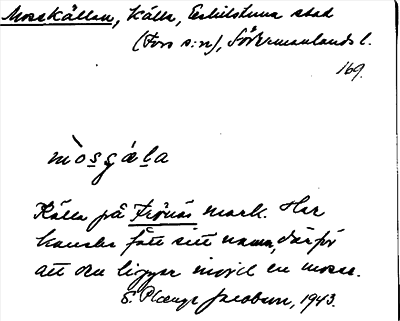 Mosskällan, källa, Eskilstuna stad
(Fors s:n), Södermanlands l.
169.
mòsgála
Källa på Frönäs mark. Har
kanske fått sitt namn, därför
att den ligger invid en mosse.
S. Jacobson, 1943.